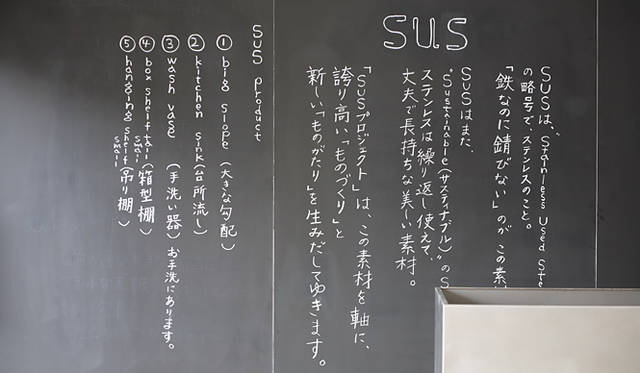 SUS
SUSは、Stainless Used Ste
の略号で、ステンレスのこと。
「鉄なのに錆びない」のが この素
SUSはまた、
"Sustainable(サスティナブル)"のS
ステンレスは繰り返し使えて、
丈夫で長持ちな美しい素材。
「SUSプロジェクト」は、この素材を軸に、
誇り高い「ものづくり」と
新しい「ものがたり」を生みだしてゆきます。
SUS product
① big slope (大きな勾配)
② kitchen sink (台所流し)
③ wash vase (手洗い器) お手洗にあります。
④ box shelf tall small (箱型棚)
⑤ hanging shelf small (吊り棚)